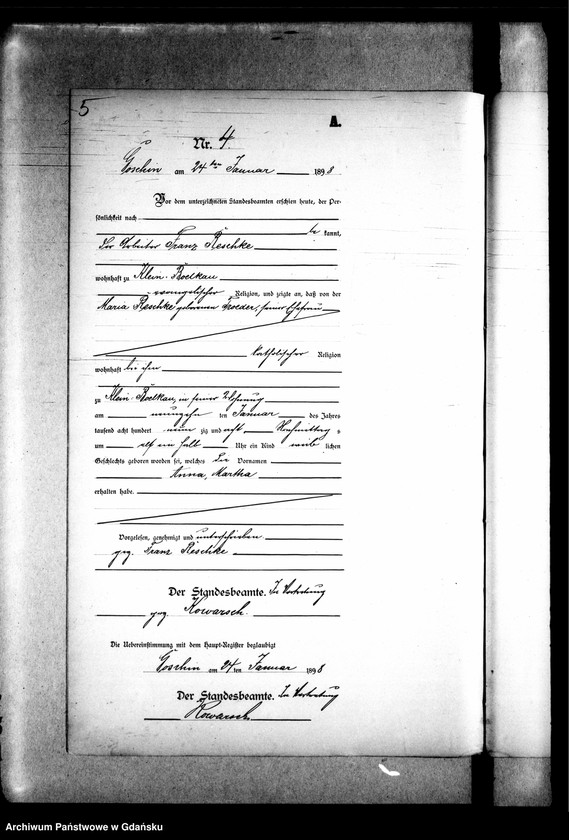 5
A.
Nr. 4
Goschin am 24ten Januar 1898
Vor dem unterzeichneten Standesbeamten erschien heute, der Per-
sönlichkeit nach
be kannt,
der Arbeiter Franz Reschke
wohnhaft zu Klein-Boelkau
evangelischer Religion, und zeigte an, daß von der
Maria Reschke geborenen Troeder, seiner Ehefrau
katholischer Religion
wohnhaft bei ihm
zu Klein-Boelkau, in seiner Wohnung
am neunzehn ten Januar des Jahres
tausend acht hundert neun zig und acht Nachmittag s
um elf ein halb Uhr ein Kind weib lichen
Geschlechts geboren worden sei, welches die Vornamen
Anna, Martha
erhalten habe.
Vorgelesen, genehmigt und unterschrieben
gez. Franz Reschke
Der Standesbeamte. In Vertretung
gez. Kowarsch.
Die Uebereinstimmung mit dem Haupt-Register beglaubigt
Goschin am 24ten Januar 1898
Der Standesbeamte. In Vertretung
Kowarsch.
Archiwum Państwowe w Gdańsku